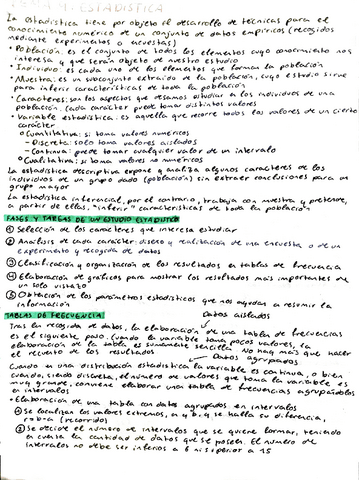 ESTADÍSTICA
La estadística tiene por objeto el desarrollo de técnicas para el
conocimiento numérico de un conjunto de datos empíricos (recogidos
mediante experimentos o encuestas)
• Población: es el conjunto de todos los elementos cuyo conocimiento nos
interesa y que serán objeto de nuestro estudio
• Individuo: es cada uno de los elementos que forman la población
• Muestra: es un subconjunto extraído de la población, cuyo estudio sirve
para inferir características de toda la población
• Caracteres: son los aspectos que deseamos estudiar en los individuos de una
población. Cada carácter puede tomar distintos valores
• Variable estadística: es aquella que recorre todos los valores de un cierto
carácter
○ Cuantitativa: si toma valores numéricos
– Discreta: solo toma valores aislados
– Continua: puede tomar cualquier valor de un intervalo
○ Cualitativa: si toma valores no numéricos
La estadística descriptiva expone y analiza algunos caracteres de los
individuos de un grupo dado (población) sin extraer conclusiones para un
grupo mayor
La estadística inferencial, por el contrario, trabaja con muestra y pretende,
a partir de ellas, "inferir" características de toda la población
FASES Y TAREAS DE UN ESTUDIO ESTADÍSTICO
① Selección de los caracteres que interesa estudiar
② Análisis de cada carácter: diseño y realización de una encuesta o de un
experimento y recogida de datos
③ Clasificación y organización de los resultados en tablas de frecuencia
④ Elaboración de gráficos para mostrar los resultados más importantes de
un solo vistazo
⑤ Obtención de los parámetros estadísticos que nos ayudan a resumir la
información
TABLAS DE FRECUENCIA: Datos aislados
Tras la recogida de datos, la elaboración de una tabla de frecuencias
es el siguiente paso. Cuando la variable toma pocos valores, la
elaboración de la tabla es sumamente sencilla. No hay más que hacer
el recuento de los resultados
Datos agrupados
Cuando en una distribución estadística la variable es continua, o bien
cuando, siendo discreta, el número de valores que toma la variable es
muy grande, conviene elaborar una tabla de frecuencias agrupándolos
en intervalos
• Elaboración de una tabla con datos agrupados en intervalos
① Se localizan los valores extremos, a y b, y se halla su diferencia,
r=b-a (recorrido)
② Se decide el número de intervalos que se quiere formar, teniendo
en cuenta la cantidad de datos que se poseen. El número de
intervalos no debe ser inferior a 6 ni superior a 15